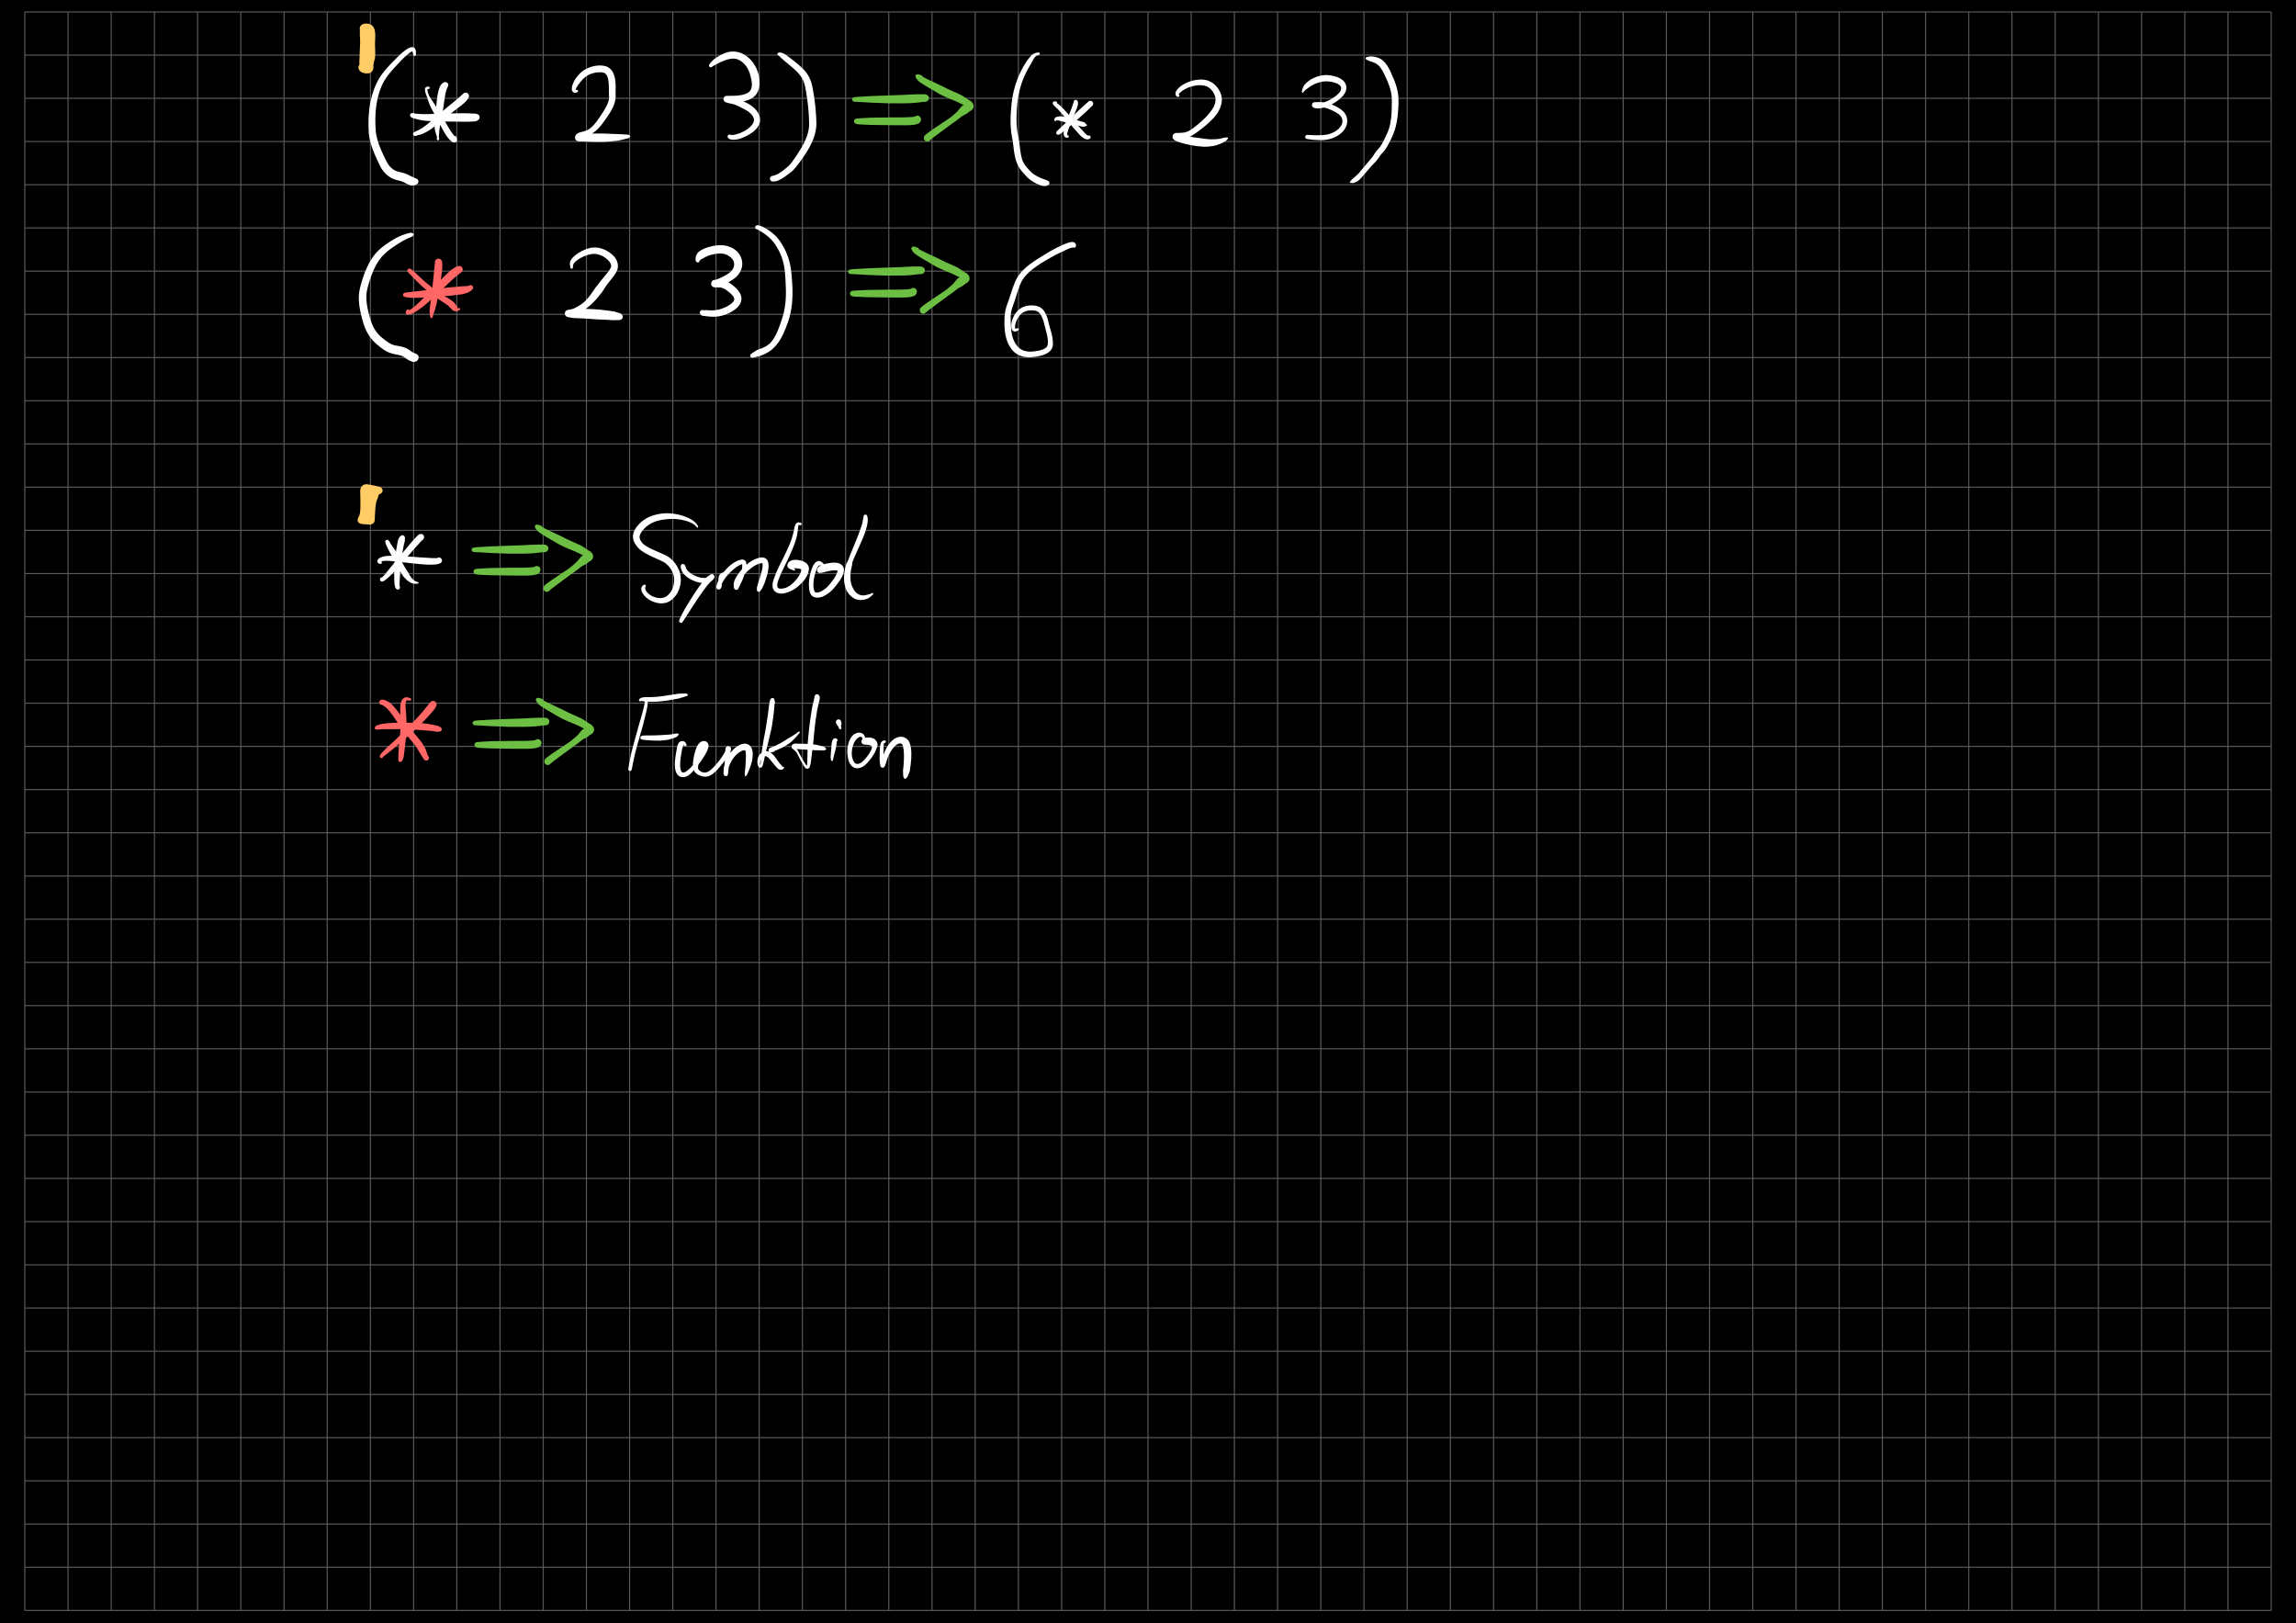 '(* 2 3) ⇒ (* 2 3)
(* 2 3) ⇒ 6
'* ⇒ Symbol
* ⇒ Funktion